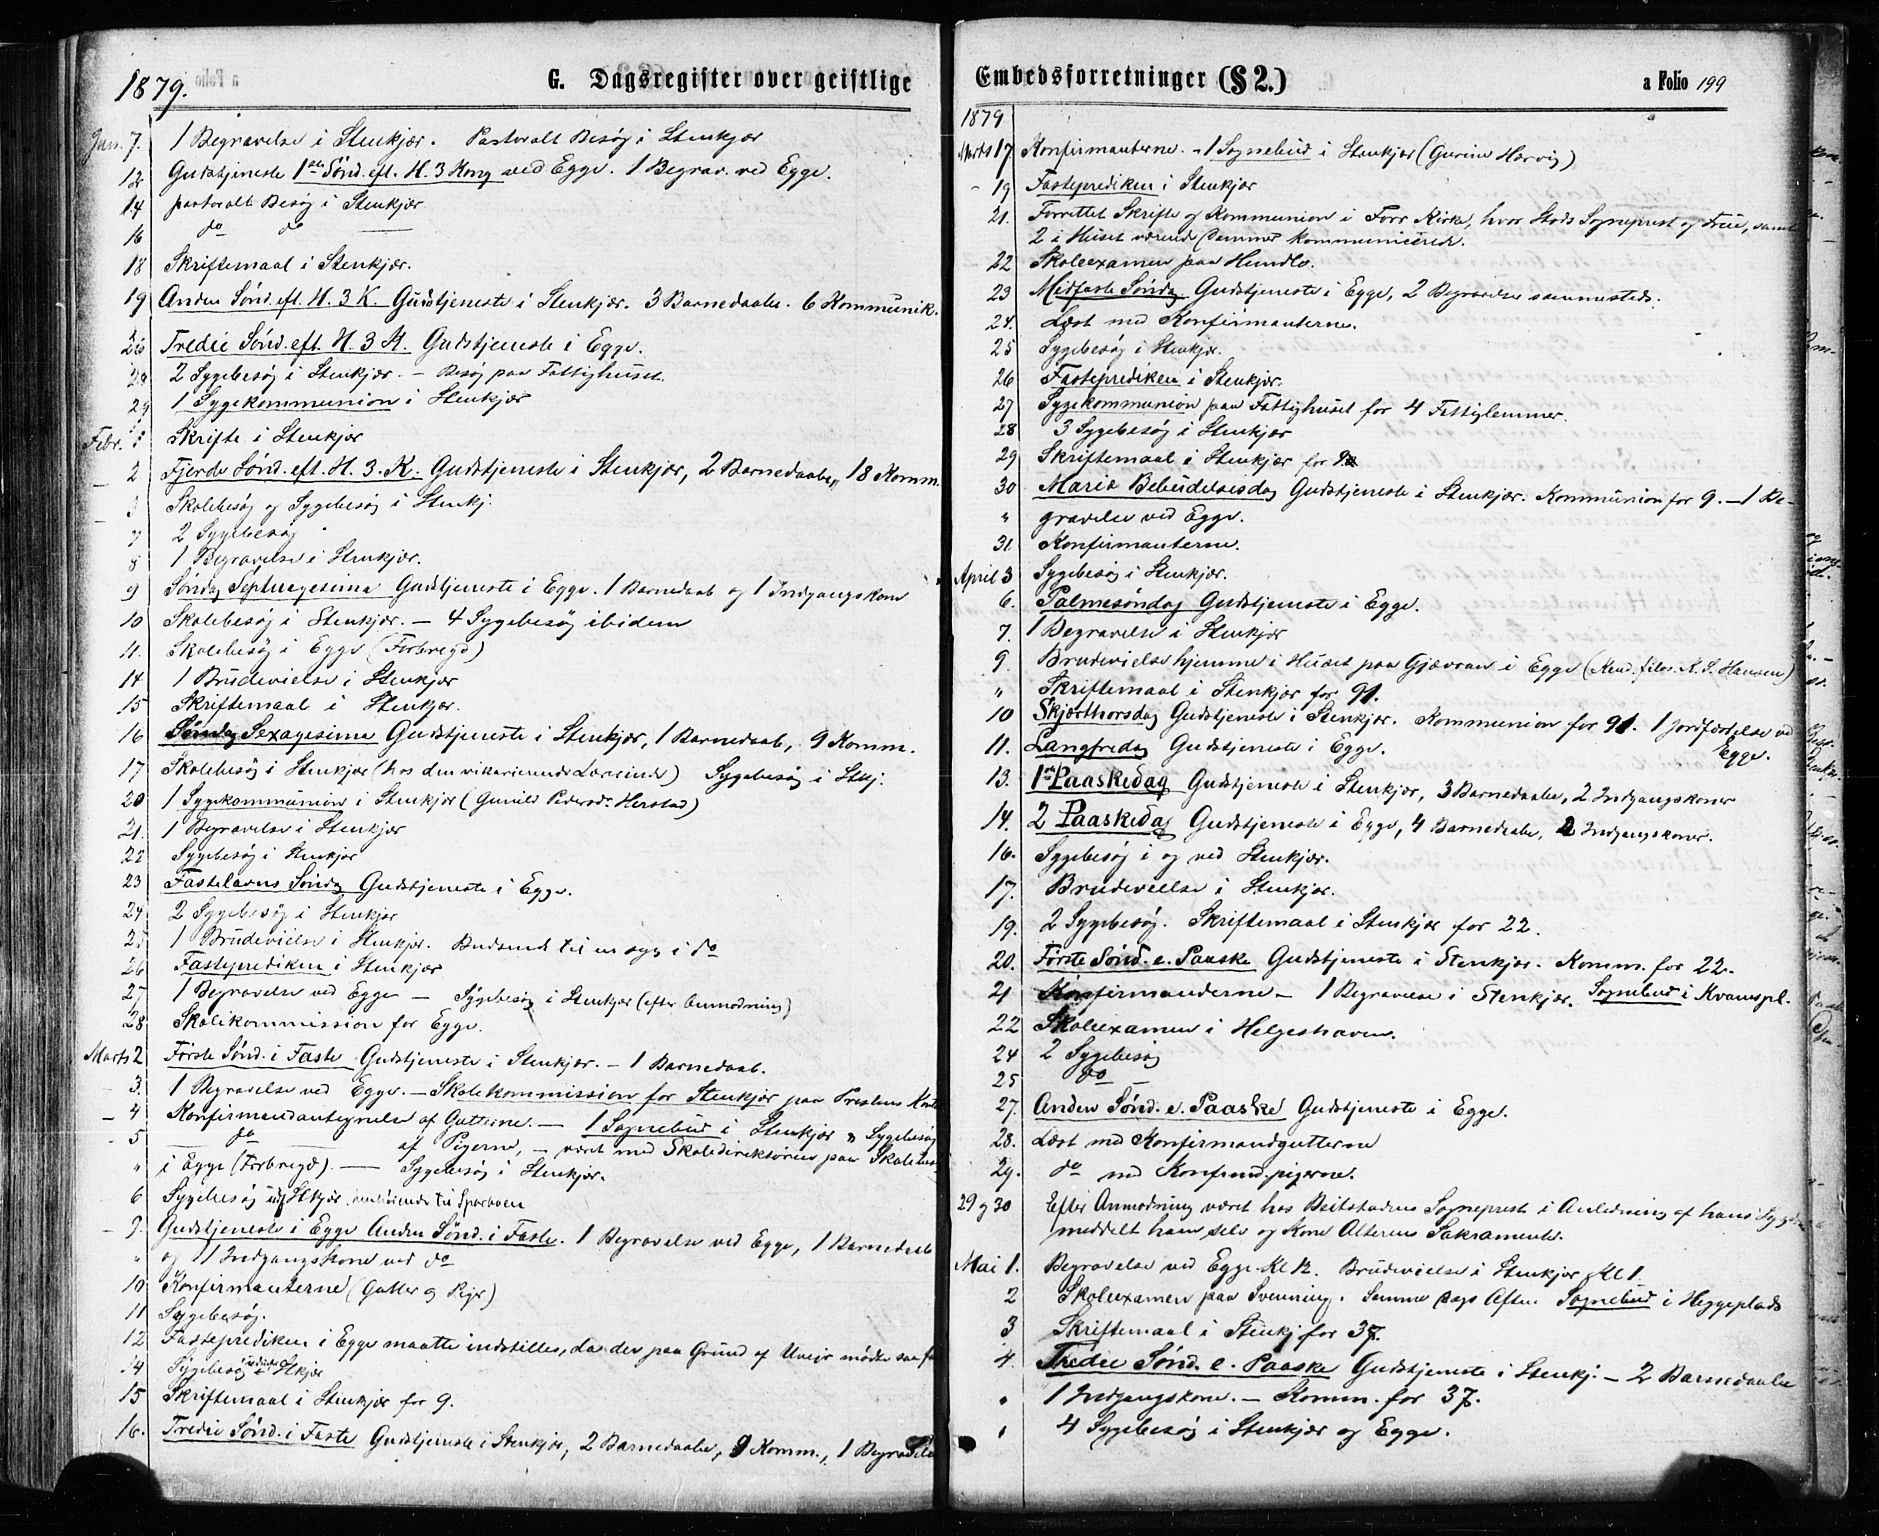 1879.
G. Dagsregister over geistlige
Jan. 7. 1 Begravelse i Stenkjær. Pastoralt Besøg i Stenkjær
12 Gudstjeneste 1ste Sønd. eft. H. 3 Kong ved Egge. 1 Begrav. ved Egge.
14 pastoralt Besøg i Stenkjær
16 do do
18 Skriftemaal i Stenkjær.
19 Anden Sønd. eft. H. 3 K. Gudstjeneste i Stenkjær. 3 Barnedaabe. 6 Kommunik.
26 Tredie Sønd. eft. H. 3 K. Gudstjeneste i Egge.
2 Sygebesøg i Stenkjær. – Besøg paa Fattighuset.
29 1 Sygekommunion i Stenkjær
Febr. 1 Skrifte i Stenkjær
2 Fjerde Sønd. eft. H. 3. K. Gudstjeneste i Stenkjær, 2 Barnedaabe, 18 Komm.
3 Skolebesøg og Sygebesøg i Stenkj.
7 2 Sygebesøg
8 1 Begravelse i Stenkjær.
9 Søndag Septuagesima Gudstjeneste i Egge. 1 Barnedaab og 1 Indgangskone
10 Skolebesøg i Stenkjær. – 4 Sygebesøg ibidem
11. Skolebesøg i Egge (Forbregd)
14 1 Brudevielse i Stenkjær
15 Skriftemaal i Stenkjær.
16 Søndag Sexagesima Gudstjeneste i Stenkjær, 1 Barnedaab, 9 Komm.
17 Skolebesøg i Stenkjær (hos den vikarierende Lærerinde) Sygebesøg i Stkj.
20 1 Sygekommunion i Stenkjær (Gunild Pedersdr. Herstad)
21. 1 Begravelse i Stenkjær
22 Sygebesøg i Stenkjær
23 Fastelavns Søndag Gudstjeneste i Egge.
24 2 Sygebesøg i Stenkjær
25 1 Brudevielse i Stenkjær. Budsendt til en syg i do
26 Fasteprediken i Stenkjær
27 1 Begravelse ved Egge – Sygebesøg i Stenkjær (efter Anmodning)
28 Skolekommission for Egge.
Marts 2 Første Sønd. i Faste Gudstjeneste i Stenkjær. – 1 Barnedaab.
3. 1 Begravelse ved Egge. – Skolekommission for Stenkjær paa Prestens Kontor
4 Konfirmandantegnelse af Gutterne. – 1 Sognebud i Stenkjær Sygebesøg
5 do af Pigerne, – været med Skoledirektøren paa
" i Egge (Forbregd). – Sygebesøg i Stenkjær.
6 Sygebesøg Stkjær. til Sparboen
9. Gudstjeneste i Egge Anden Sønd. i Faste. 1 Begravelse ved Egge, 1 Barnedaab
" og 1 Indgangskone ved do
10 Konfirmanterne (Gutter og Piger)
11 Sygebesøg.
12 Fasteprediken i Egge maatte indstilles, da der paa Grund af Uveir mødte saa faa
14 Sygebesøg Stkjær
15 Skriftemaal i Stenkjær for 9.
16. Tredie Sønd. i Faste Gudstjeneste i Stenkjær, 2 Barnedaabe, 9 Komm., 1 Begravelse
Embedsforretninger (§ 2.)
a Folio 199
1879
Marts 17 Konfirmanterne. – 1 Sognebud i Stenkjær (Gurine Hervig)
19 Fasteprediken i Stenkjær
21. Forrettet Skrifte og Kommunion i For Kirke, hvor Stods Sogneprest og Frue, samt
2 i Huset værende Personer kommunicerede.
22 Skoleexamen paa Hundlo.
23 Midfaste Søndag Gudstjeneste i Egge, 2 Begravelser sammesteds.
24. Læst med Konfirmanterne.
25 Sygebesøg i Stenkjær.
26 Fasteprediken i Stenkjær.
27 Sygekommunion paa Fattighuset for 4 Fattiglemmer.
28 3 Sygebesøg i Stenkjær
29 Skriftemaal i Stenkjær for 9
30 Mariæ Bebudelsesdag Gudstjeneste i Stenkjær. Kommunion for 9. – 1 Be-
" gravelse ved Egge.
31. Konfirmanterne.
April 3 Sygebesøg i Stenkjær.
6. Palmesøndag Gudstjeneste i Egge.
7. 1 Begravelse i Stenkjær
9. Brudevielse hjemme i Huset paa Gjævran i Egge (Kand. filos. Hansen)
" Skriftemaal i Stenkjær for 91.
10 Skjærthorsdag Gudstjeneste i Stenkjær. Kommunion for 91. 1 Jordfæstelse ved
Egge.
11. Langfredag Gudstjeneste i Egge.
13. 1ste Paaskedag Gudstjeneste i Stenkjær, 3 Barnedaabe, 2 Indgangskoner
14. 2 Paaskedag Gudstjeneste i Egge, 4 Barnedaabe, 2 Indgangskoner.
16. Sygebesøg i og ved Stenkjær.
17. Brudevielse i Stenkjær.
19. 2 Sygebesøg. Skriftemaal i Stenkjær for 22.
20. Første Sønd. e. Paaske Gudstjeneste i Stenkjær. Komm. for 22.
21 Konfirmanderne – 1 Begravelse i Stenkjær. Sognebud i Kvamspl.
22 Skoleexamen i Helgeshaven.
24 2 Sygebesøg
25 do
27. Anden Sønd. e. Paaske Gudstjeneste i Egge.
28. Læst med Konfirmandgutterne
29. do med Konfmd.pigerne.
29 og 30 Efter Anmodning været hos Beitstadens Sogneprest i Anledning af hans Sygdom
meddelt ham selv og Kone Alterens Sakramente.
Mai 1. Begravelse ved Egge Kl 12. Brudevielse i Stenkjær Kl 1.
2 Skoleexamen paa Svenning. Samme Dags Aften Sognebud i Heggeplads
3 Skriftemaal i Stenkj for 37.
4. Tredie Sønd. e. Paaske Gudstjeneste i Stenkj. – 2 Barnedaabe
" 1 Indgangskone. – Komm. for 37.
" 4 Sygebesøg i Stenkjær og Egge.